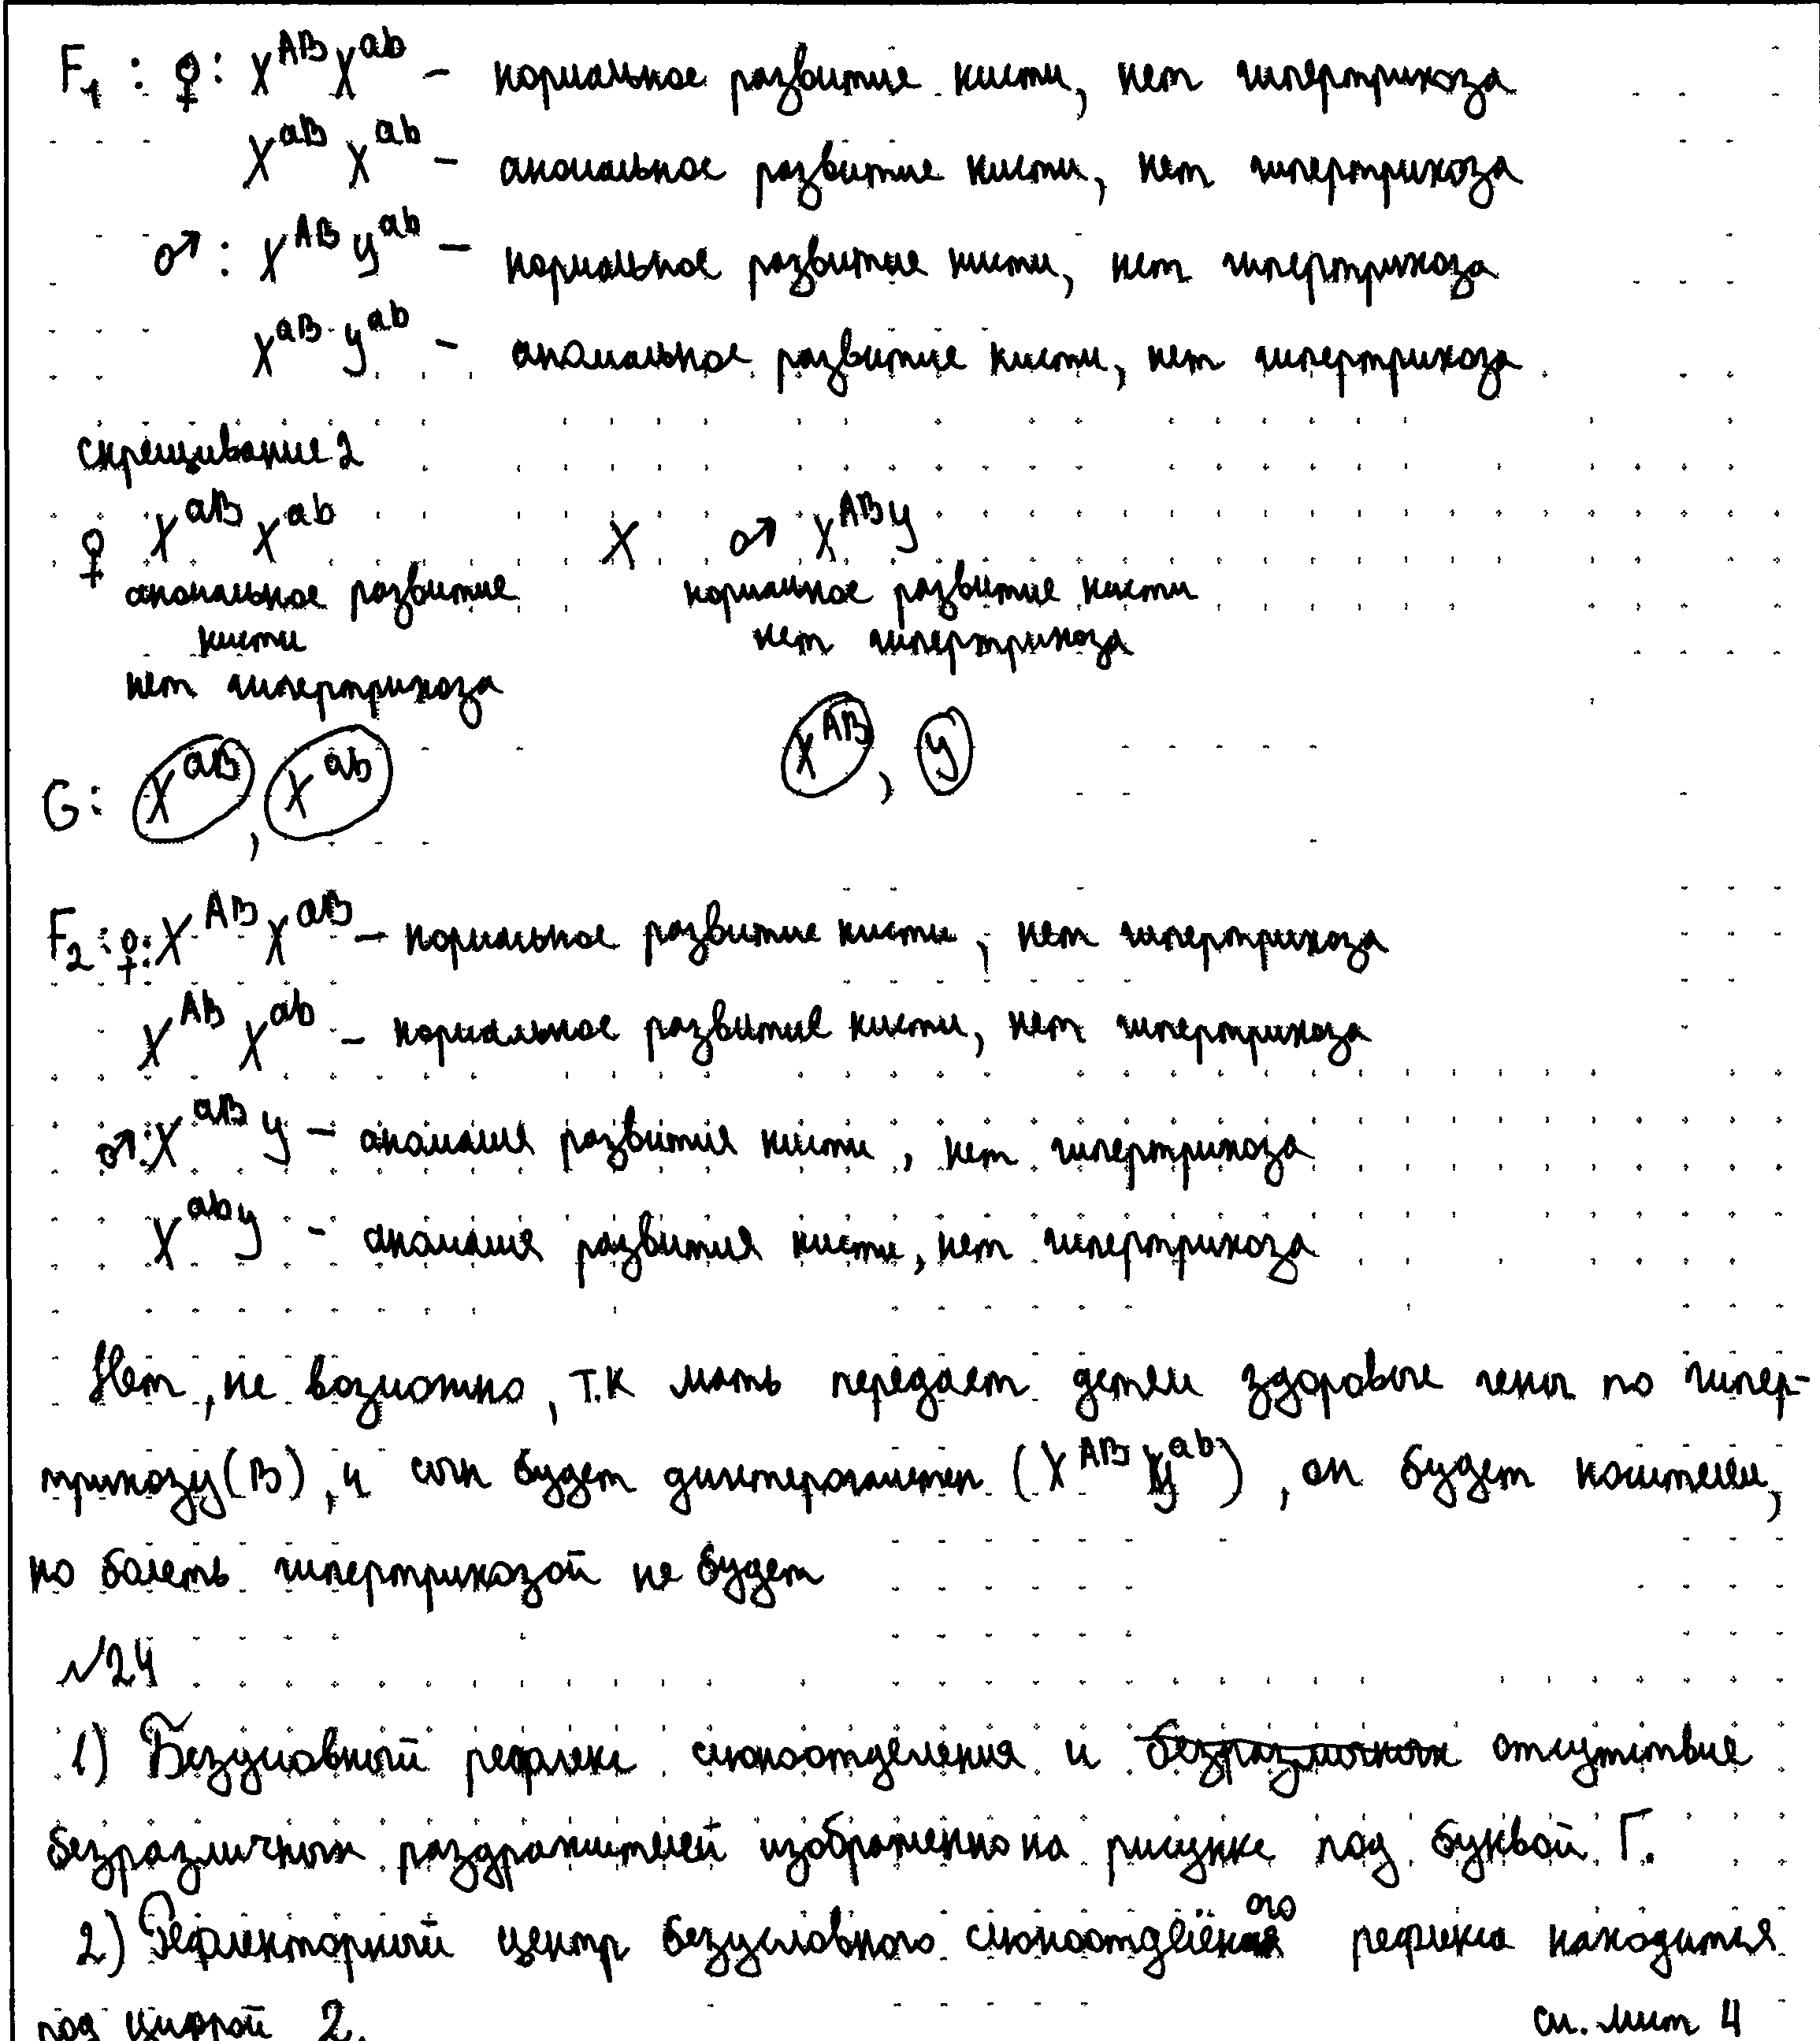 F₁ : ♀: X^AB X^ab – нормальное развитие кисти, нет гипертрихоза
X^aB X^ab – аномальное развитие кисти, нет гипертрихоза
♂: X^AB У^ab – нормальное развитие кисти, нет гипертрихоза
X^aB У^ab – аномальное развитие кисти, нет гипертрихоза
скрещивание 2
♀ X^aB X^ab X ♂ X^AB У
аномальное развитие нормальное развитие кисти
кисти нет гипертрихоза
нет гипертрихоза
G: X^aB, X^ab X^AB, У
F₂: ♀: X^AB X^aB – нормальное развитие кисти, нет гипертрихоза
X^AB X^ab – нормальное развитие кисти, нет гипертрихоза
♂: X^aB У – аномалия развития кисти, нет гипертрихоза
X^ab У – аномалия развития кисти, нет гипертрихоза
Нет, не возможно, т.к мать передает детем здоровые гены по гипер-
трихозу(B), и сын будет дигетерогаметен (X^AB У^ab), он будет носителем,
но болеть гипертрихозой не будет
№24
1) Безусловный рефлекс слюноотделения и безразличных отсутствие
безразличных раздражителей изображенно на рисунке под буквой Г.
2) Рефлекторный центр безусловного слюноотделёного рефлекса находится
под цифрой 2.
см. лист 4